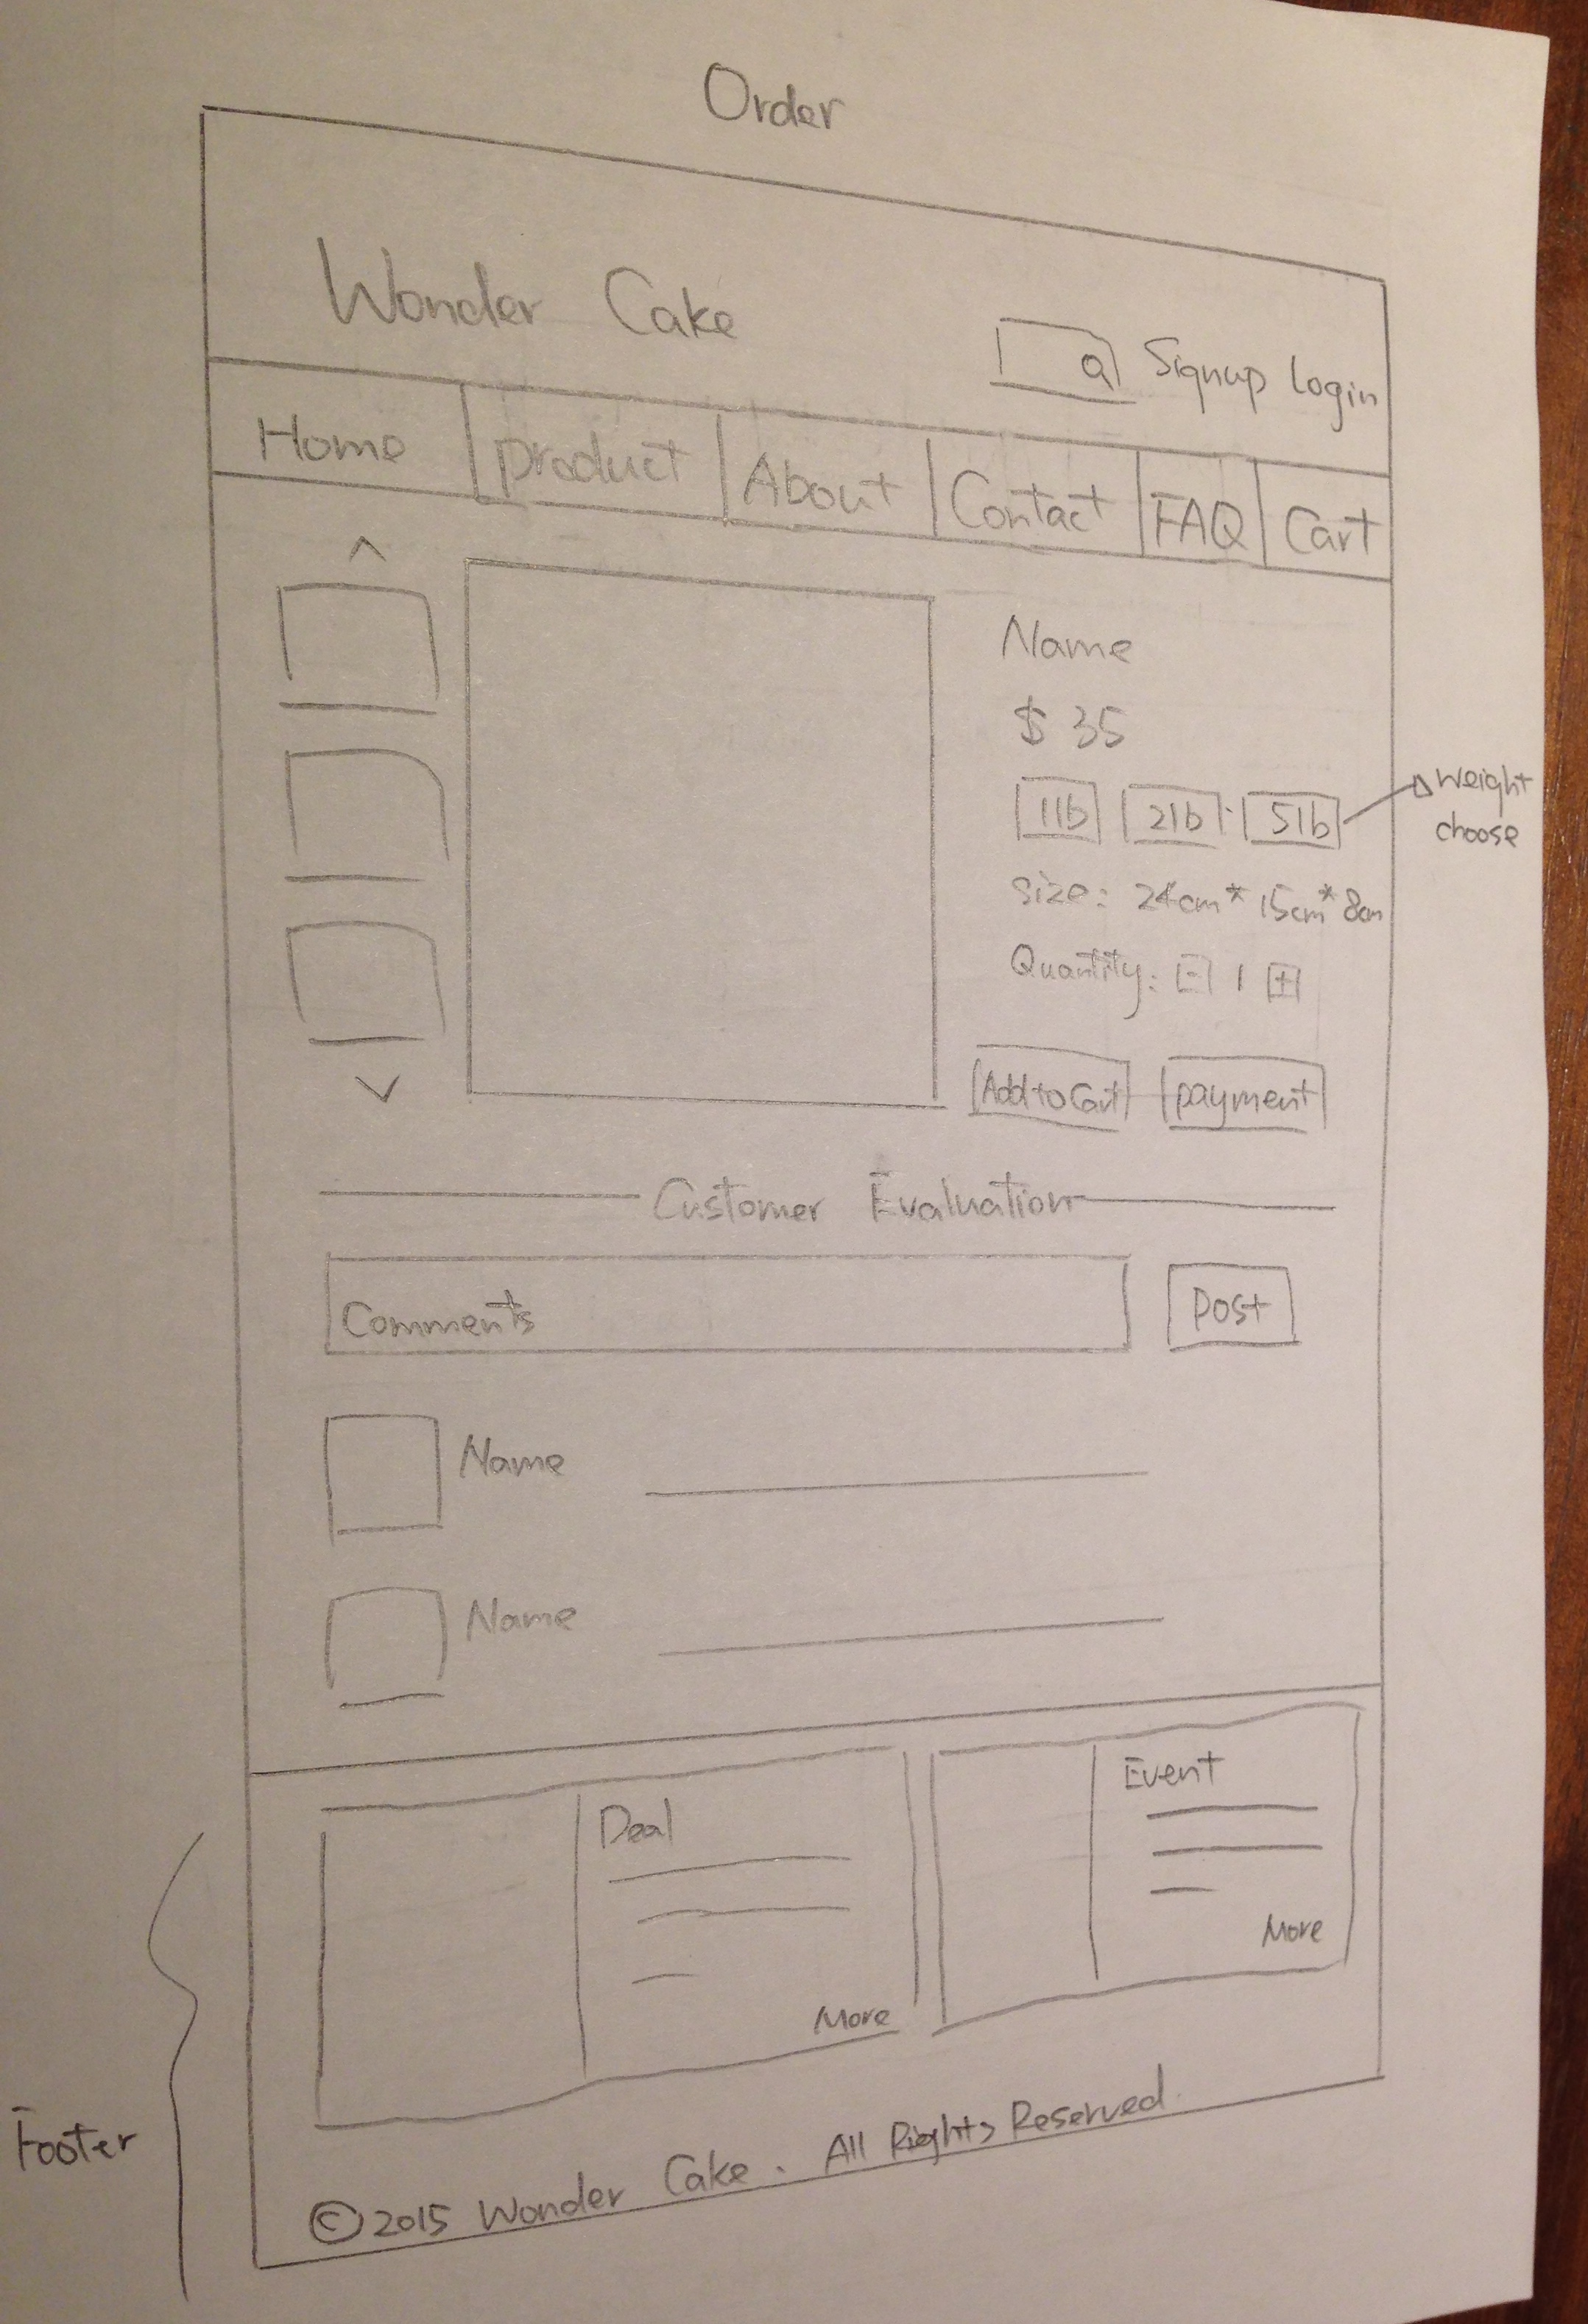 Order
Wonder Cake
Signup Login
Home Product About Contact FAQ Cart
Name
$ 35
1lb 2lb 5lb
Weight
choose
Size: 24cm* 15cm* 8cm
Quantity: - 1 +
Add to Cart payment
Customer Evaluation
Comments
Post
Name
Name
Deal
More
Event
More
Footer
©2015 Wonder Cake. All Rights Reserved.